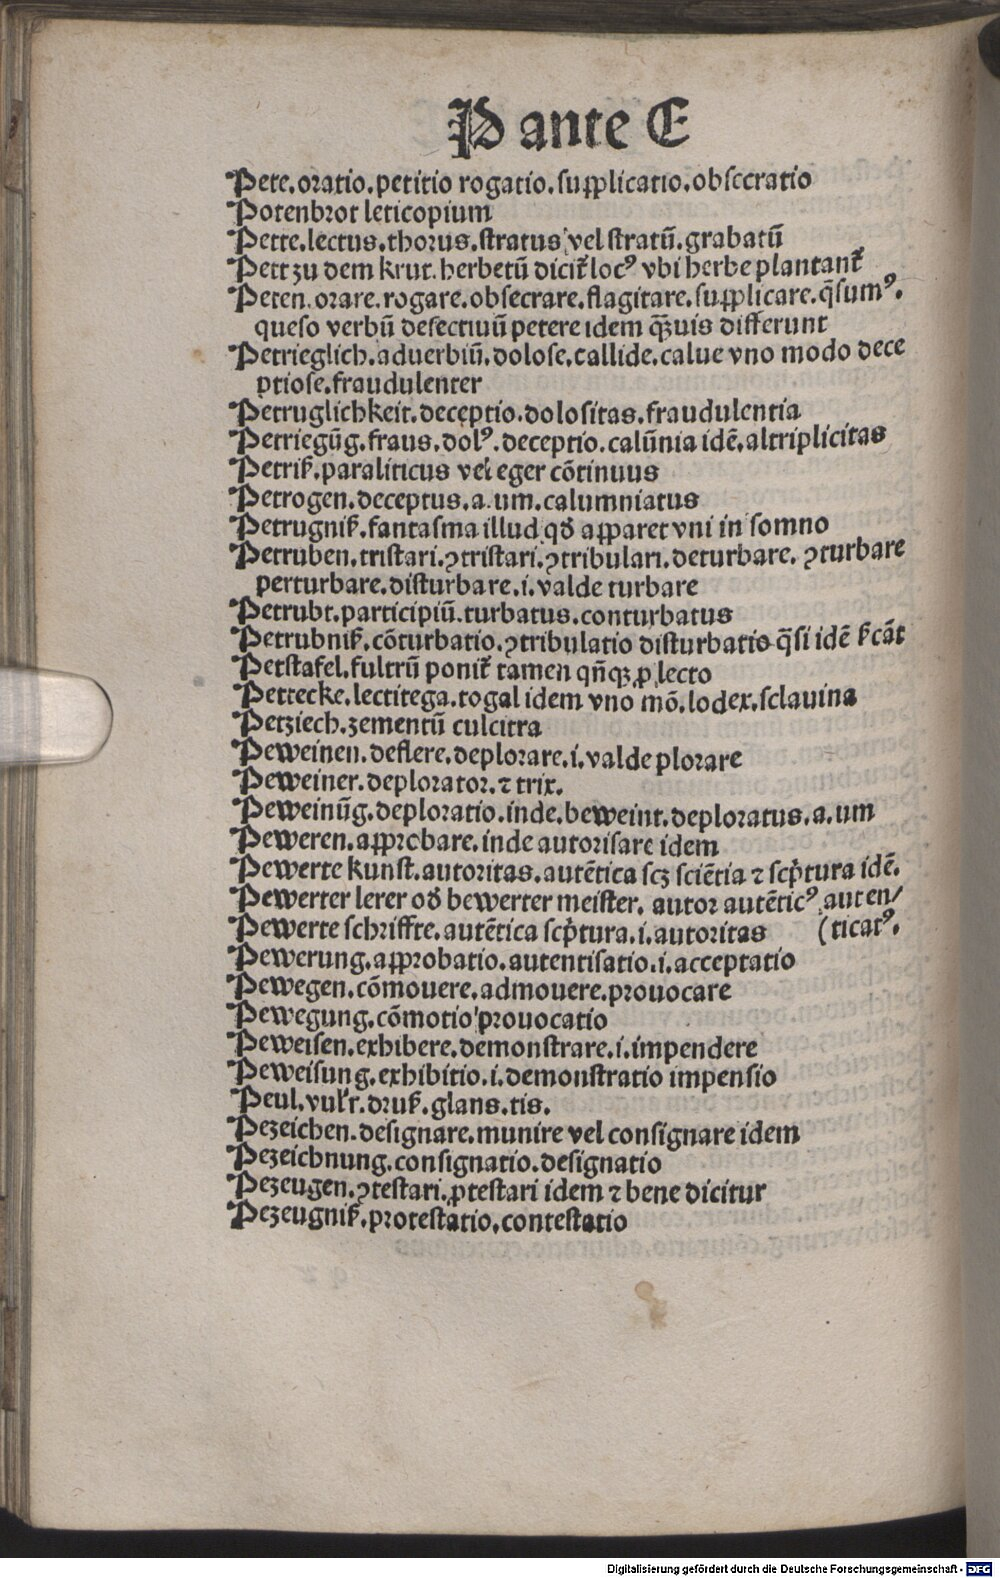 P ante E
Pete.oratio.petitio rogatio.supplicatio.obsecratio
Potenbrot leticopium
Pette.lectus.thorus.stratus vel stratū.grabatū
Pett zu dem krut.herbetū dicit̄ locꝰ vbi herbe plantant̄
Peten.orare.rogare.obsecrare.flagitare.supplicare.q̄sumꝰ.
queso verbū defectiuū petere idem q̄uis differunt
Petrieglich.aduerbiū.dolose.callide.calue vno modo dece
ptiose.fraudulenter
Petruglichkeit.deceptio.dolositas.fraudulentia
Petriegūg.fraus.dolꝰ.deceptio.calūnia idē.altriplicitas
Petriß.paraliticus vel eger cōtinuus
Petrogen.deceptus.a.um.calumniatus
Petrugniß.fantasma illud qđ apparet vni in somno
Petruben.tristari.ꝯtristari.ꝯtribulari.deturbare.ꝯturbare
perturbare.disturbare.i.valde turbare
Petrubt.participiū.turbatus.conturbatus
Petrubniß.cōturbatio.ꝯtribulatio disturbatio q̄si idē
Petstafel.fultrū ponit̄ tamen qn̄qꝫ ꝓ lecto
Pettecke.lectitega.togal idem vno mō.lodex.sclauina
Petziech.zementū culcitra
Peweinen.deflere.deplorare.i.valde plorare
Peweiner.deplorator.⁊ trix.
Peweinūg.deploratio.inde.beweint.deploratus.a.um
Peweren.approbare.inde autorisare idem
Pewerte kunst.autoritas.autētica scꝫ sciētia ⁊ scp̄tura idē.
Pewerter lerer ođ bewerter meister.autor autēticꝰ auten/
Pewerte schriffte.autētica scp̄tura.i.autoritas (ticatꝰ.
Pewerung.approbatio.autentisatio.i.acceptatio
Pewegen.cōmouere.admouere.prouocare
Pewegung.cōmotio prouocatio
Peweisen.exhibere.demonstrare.i.impendere
Peweisung.exhibitio.i.demonstratio impensio
Peul.druß.glans.tis.
Pezeichen.designare.munire vel consignare idem
Pezeichnung.consignatio.designatio
Pezeugen.ꝯtestari.ꝓtestari idem ⁊ bene dicitur
Pezeugniß.protestatio.contestatio
Digitalisierung gefördert durch die Deutsche Forschungsgemeinschaft - DFG